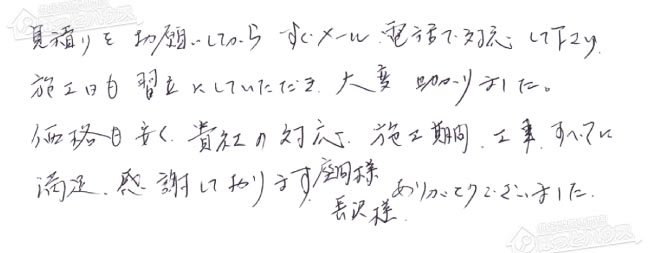 見積りをお願いしてからすぐメール、電話で対応して下さり、
施工日も翌々にしていただき、大変助かりました。
価格も安く、貴社の対応、施工期間、工事、すべてに
満足、感謝しております。座間様
長沢様 ありがとうございました。